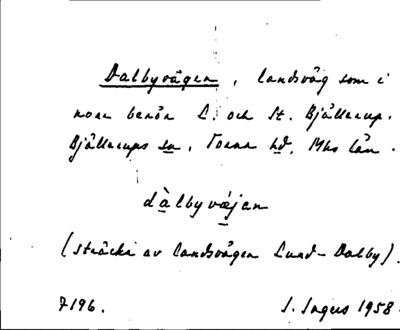 Dalbyvägen, landsväg som i
norr berör L. och St. Bjällerup.
Bjällerups sn, Torna hd, Mhs län.
dàlbyvæjan
(sträcka av landsvägen Lund-Dalby).
7196. I. Ingers 1958.